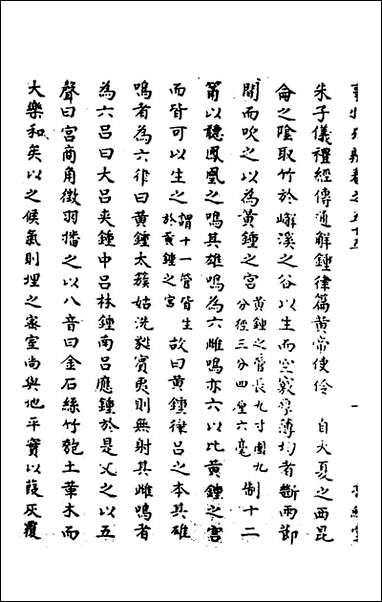 朱子儀禮經傳通解鍾律篇黃帝使伶 自大夏之西昆
侖之陰取竹於嶰溪之谷以生而空竅厚薄均者斷兩節
間而吹之以為黃鍾之宮黃鍾之管長九寸圍九分徑三分四釐六毫制十二
筩以聽鳳凰之鳴其雄鳴為六雌鳴亦六以比黃鍾之宮
而皆可以生之謂十一管皆生於黃鍾之宮故曰黃鍾律呂之本其雄
鳴者為六律曰黃鍾太蔟姑洗蕤賓夷則無射其雌鳴者
為六呂曰大呂夾鍾中呂林鍾南呂應鍾於是文之以五
聲曰宮商角徵羽播之以八音曰金石絲竹匏土革木而
大樂和矣以之候氣則埋之密室尚與地平實以葭灰覆